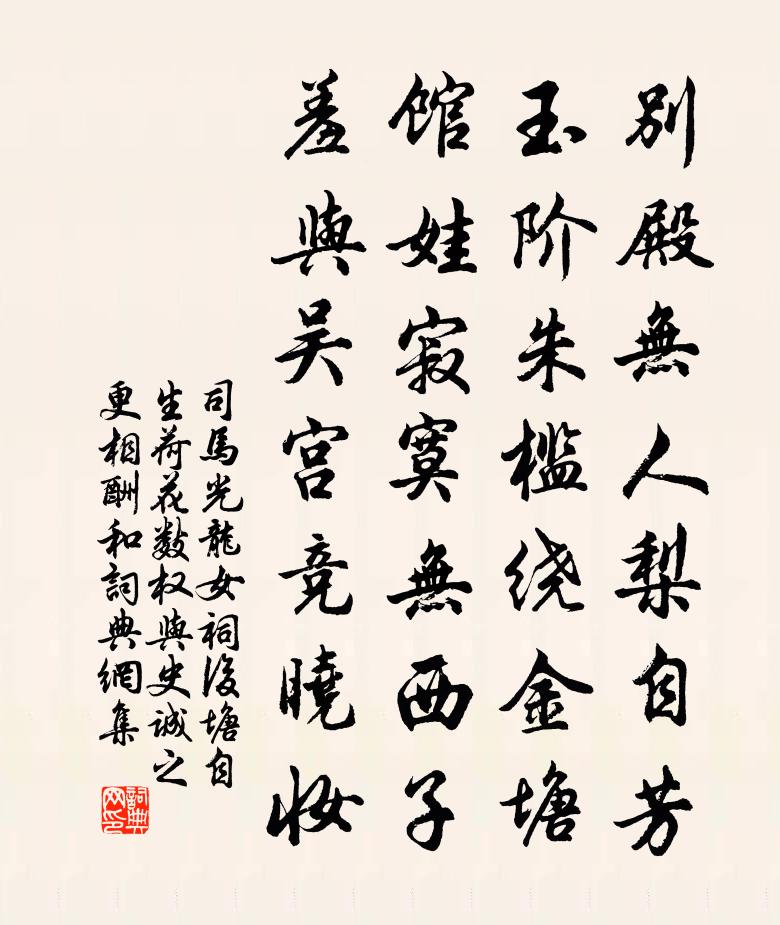 別殿無人梨自芳
玉阶朱槛绕金塘
馆娃寂寞無西子
羞與吴宫竞曉妆
司馬光龍女祠後塘自
生荷花数权與史诚之
更相酬和詞典網集
詞典
网印